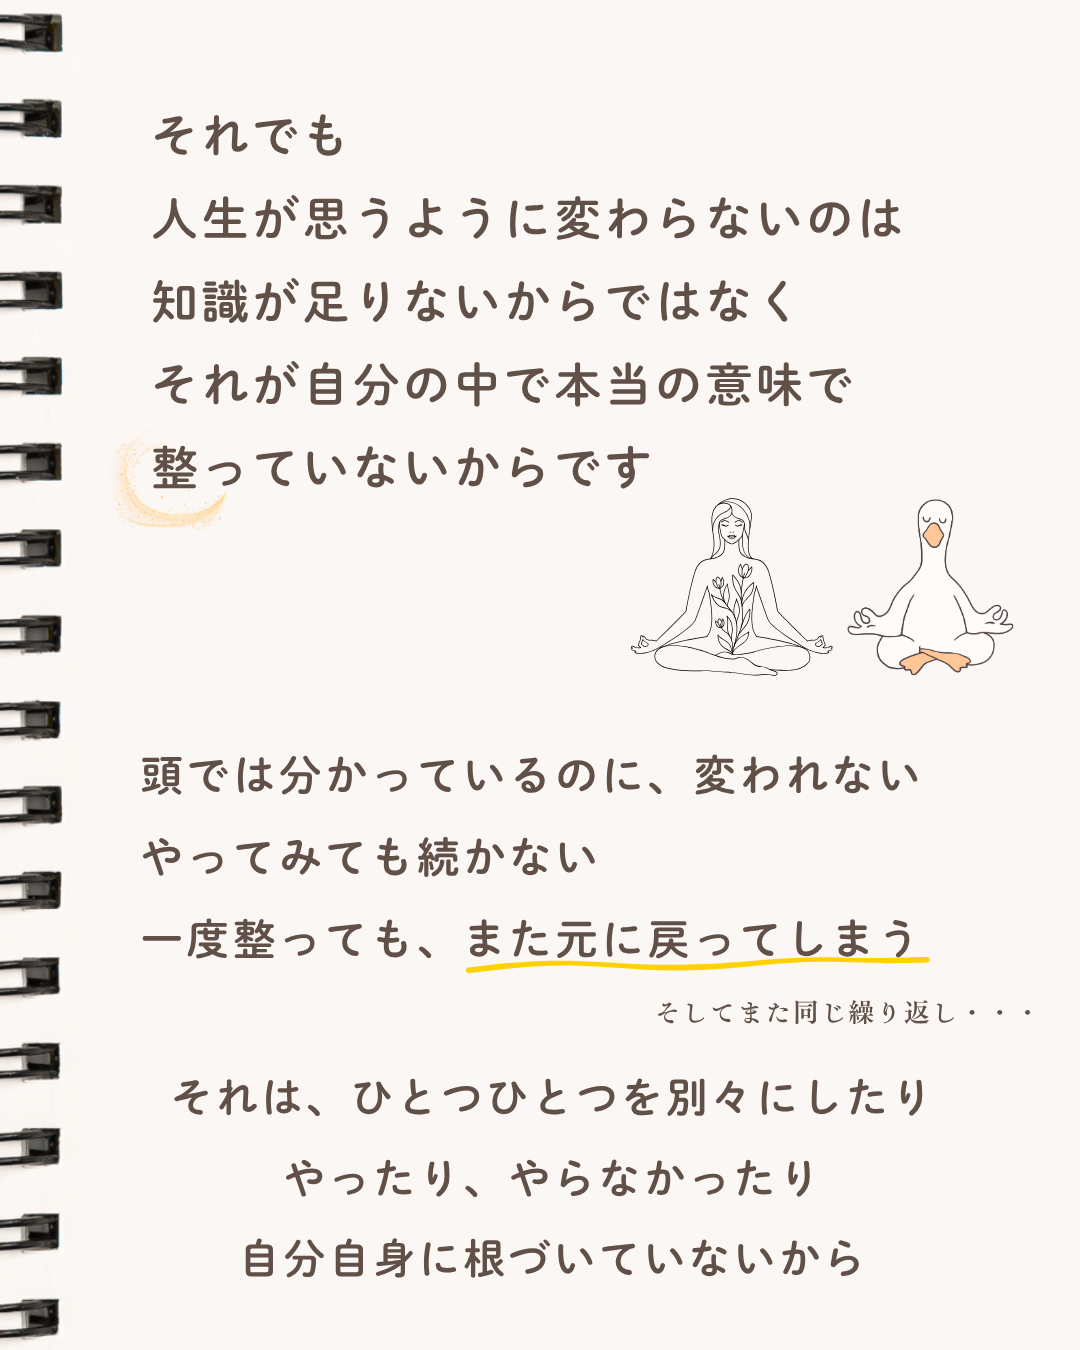 それでも
人生が思うように変わらないのは
知識が足りないからではなく
それが自分の中で本当の意味で
整っていないからです
頭では分かっているのに、変われない
やってみても続かない
一度整っても、また元に戻ってしまう
そしてまた同じ繰り返し・・・
それは、ひとつひとつを別々にしたり
やったり、やらなかったり
自分自身に根づいていないから